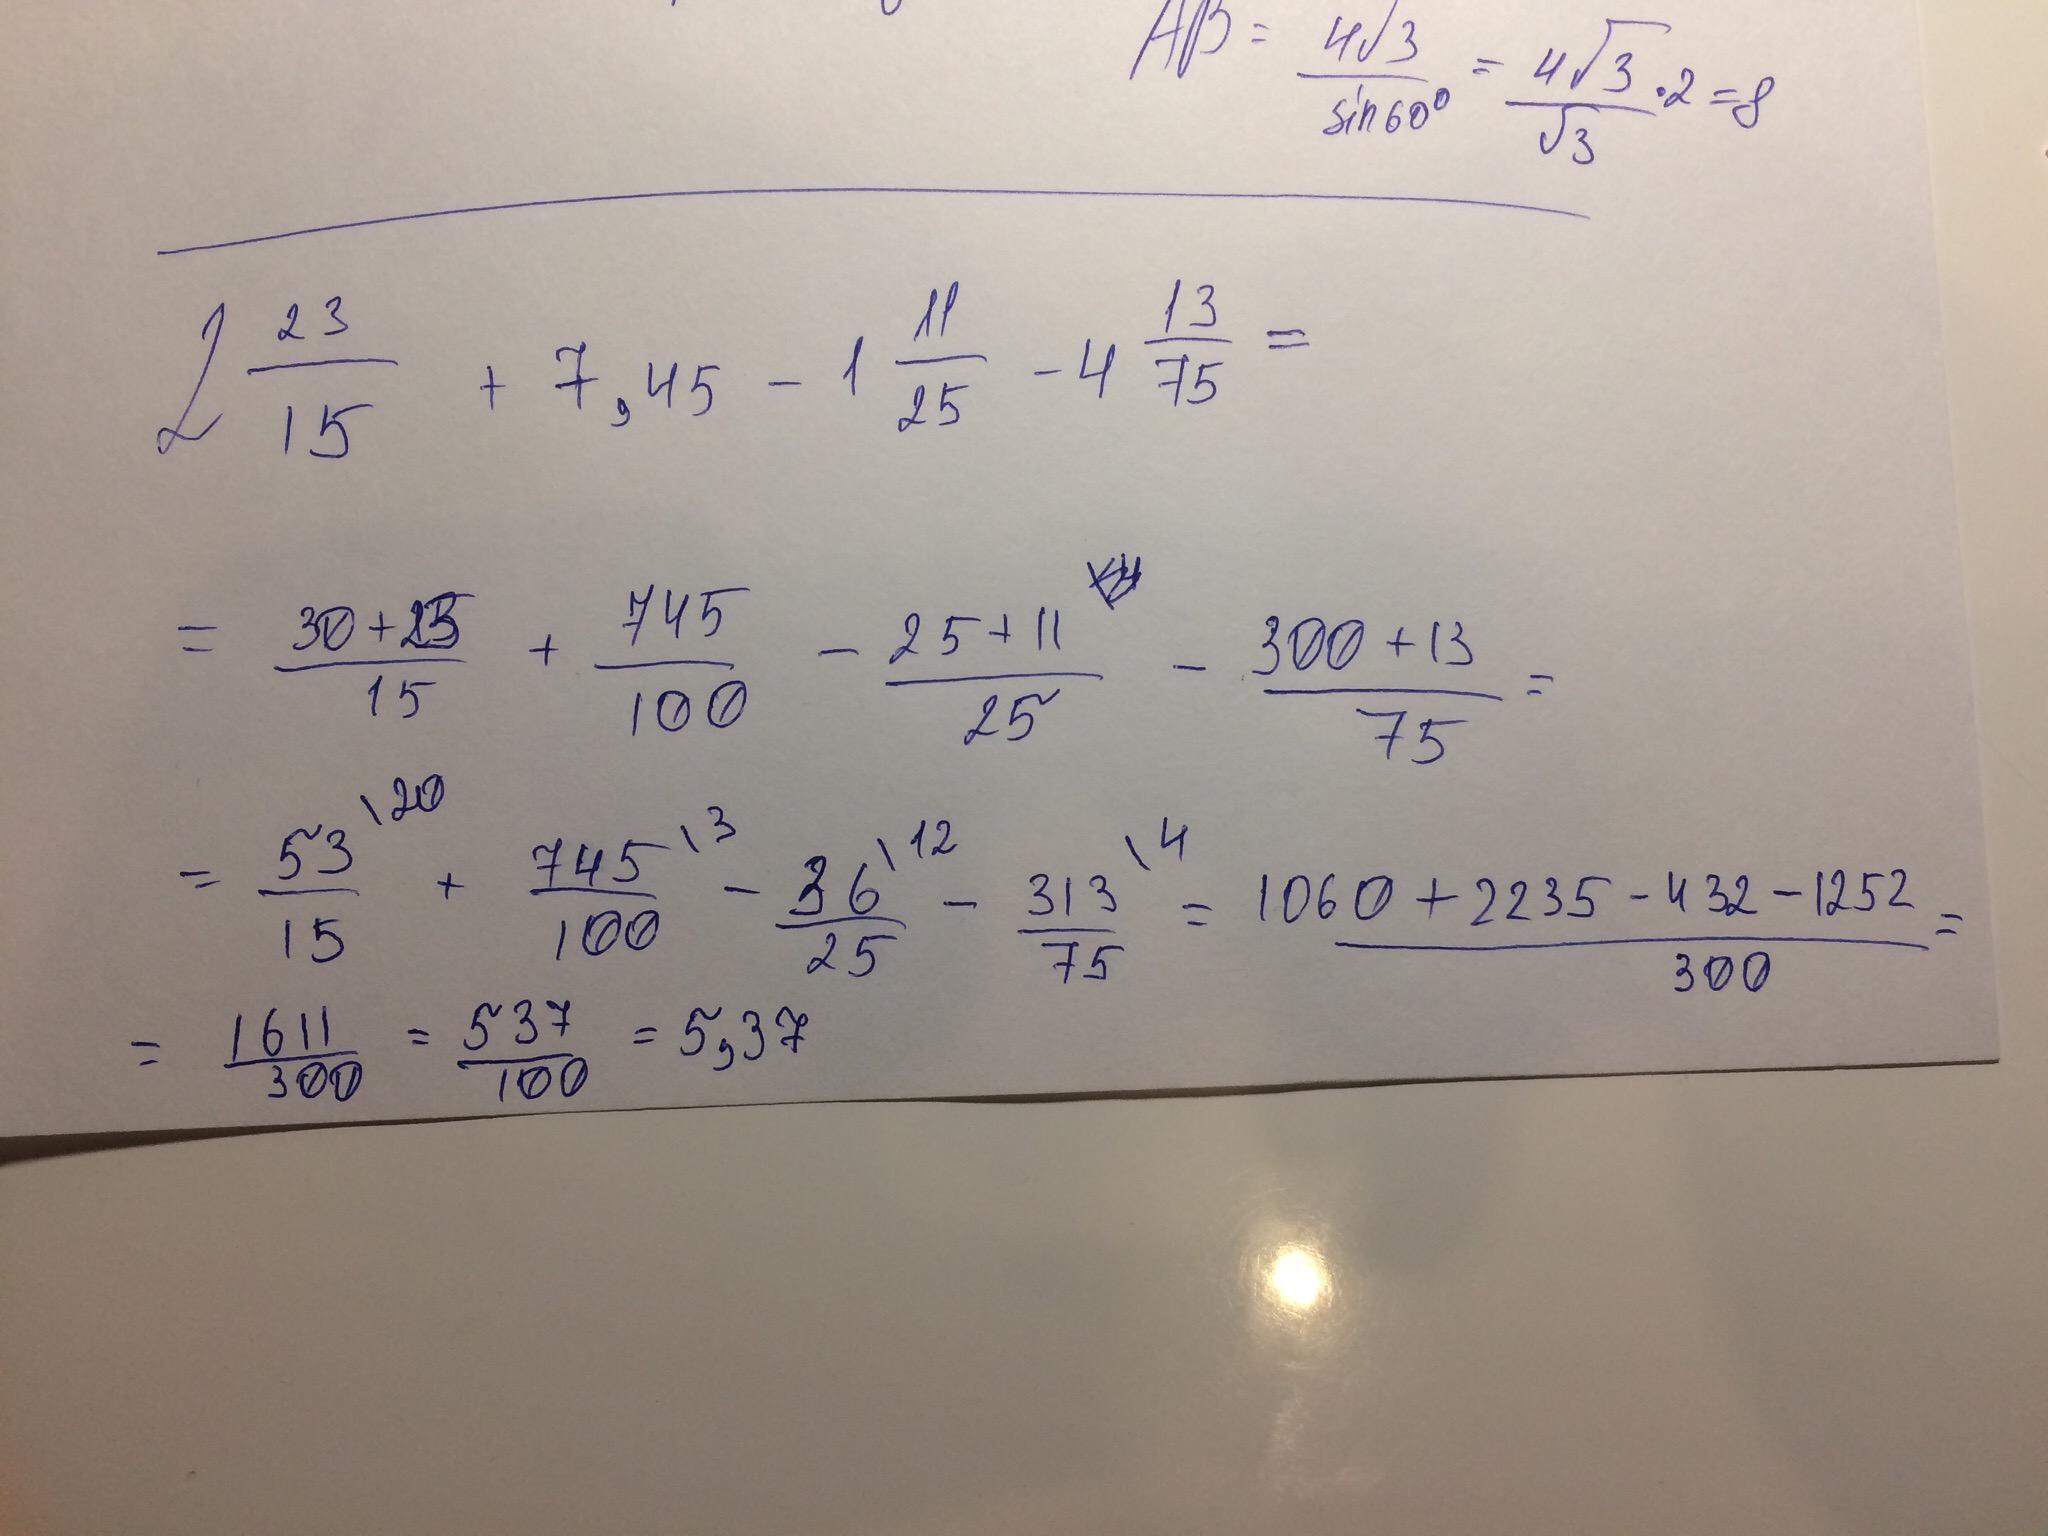 AB = 4√3 / sin60° = 4√3 / √3 · 2 = 8
2 23/15 + 7,45 - 1 11/25 - 4 13/75 =
= 30+23 / 15 + 745/100 - 25+11 / 25 - 300+13 / 75 =
= 53\20 / 15 + 745\3 / 100 - 36\12 / 25 - 313\4 / 75 = 1060+2235-432-1252 / 300 =
= 1611/300 = 537/100 = 5,37